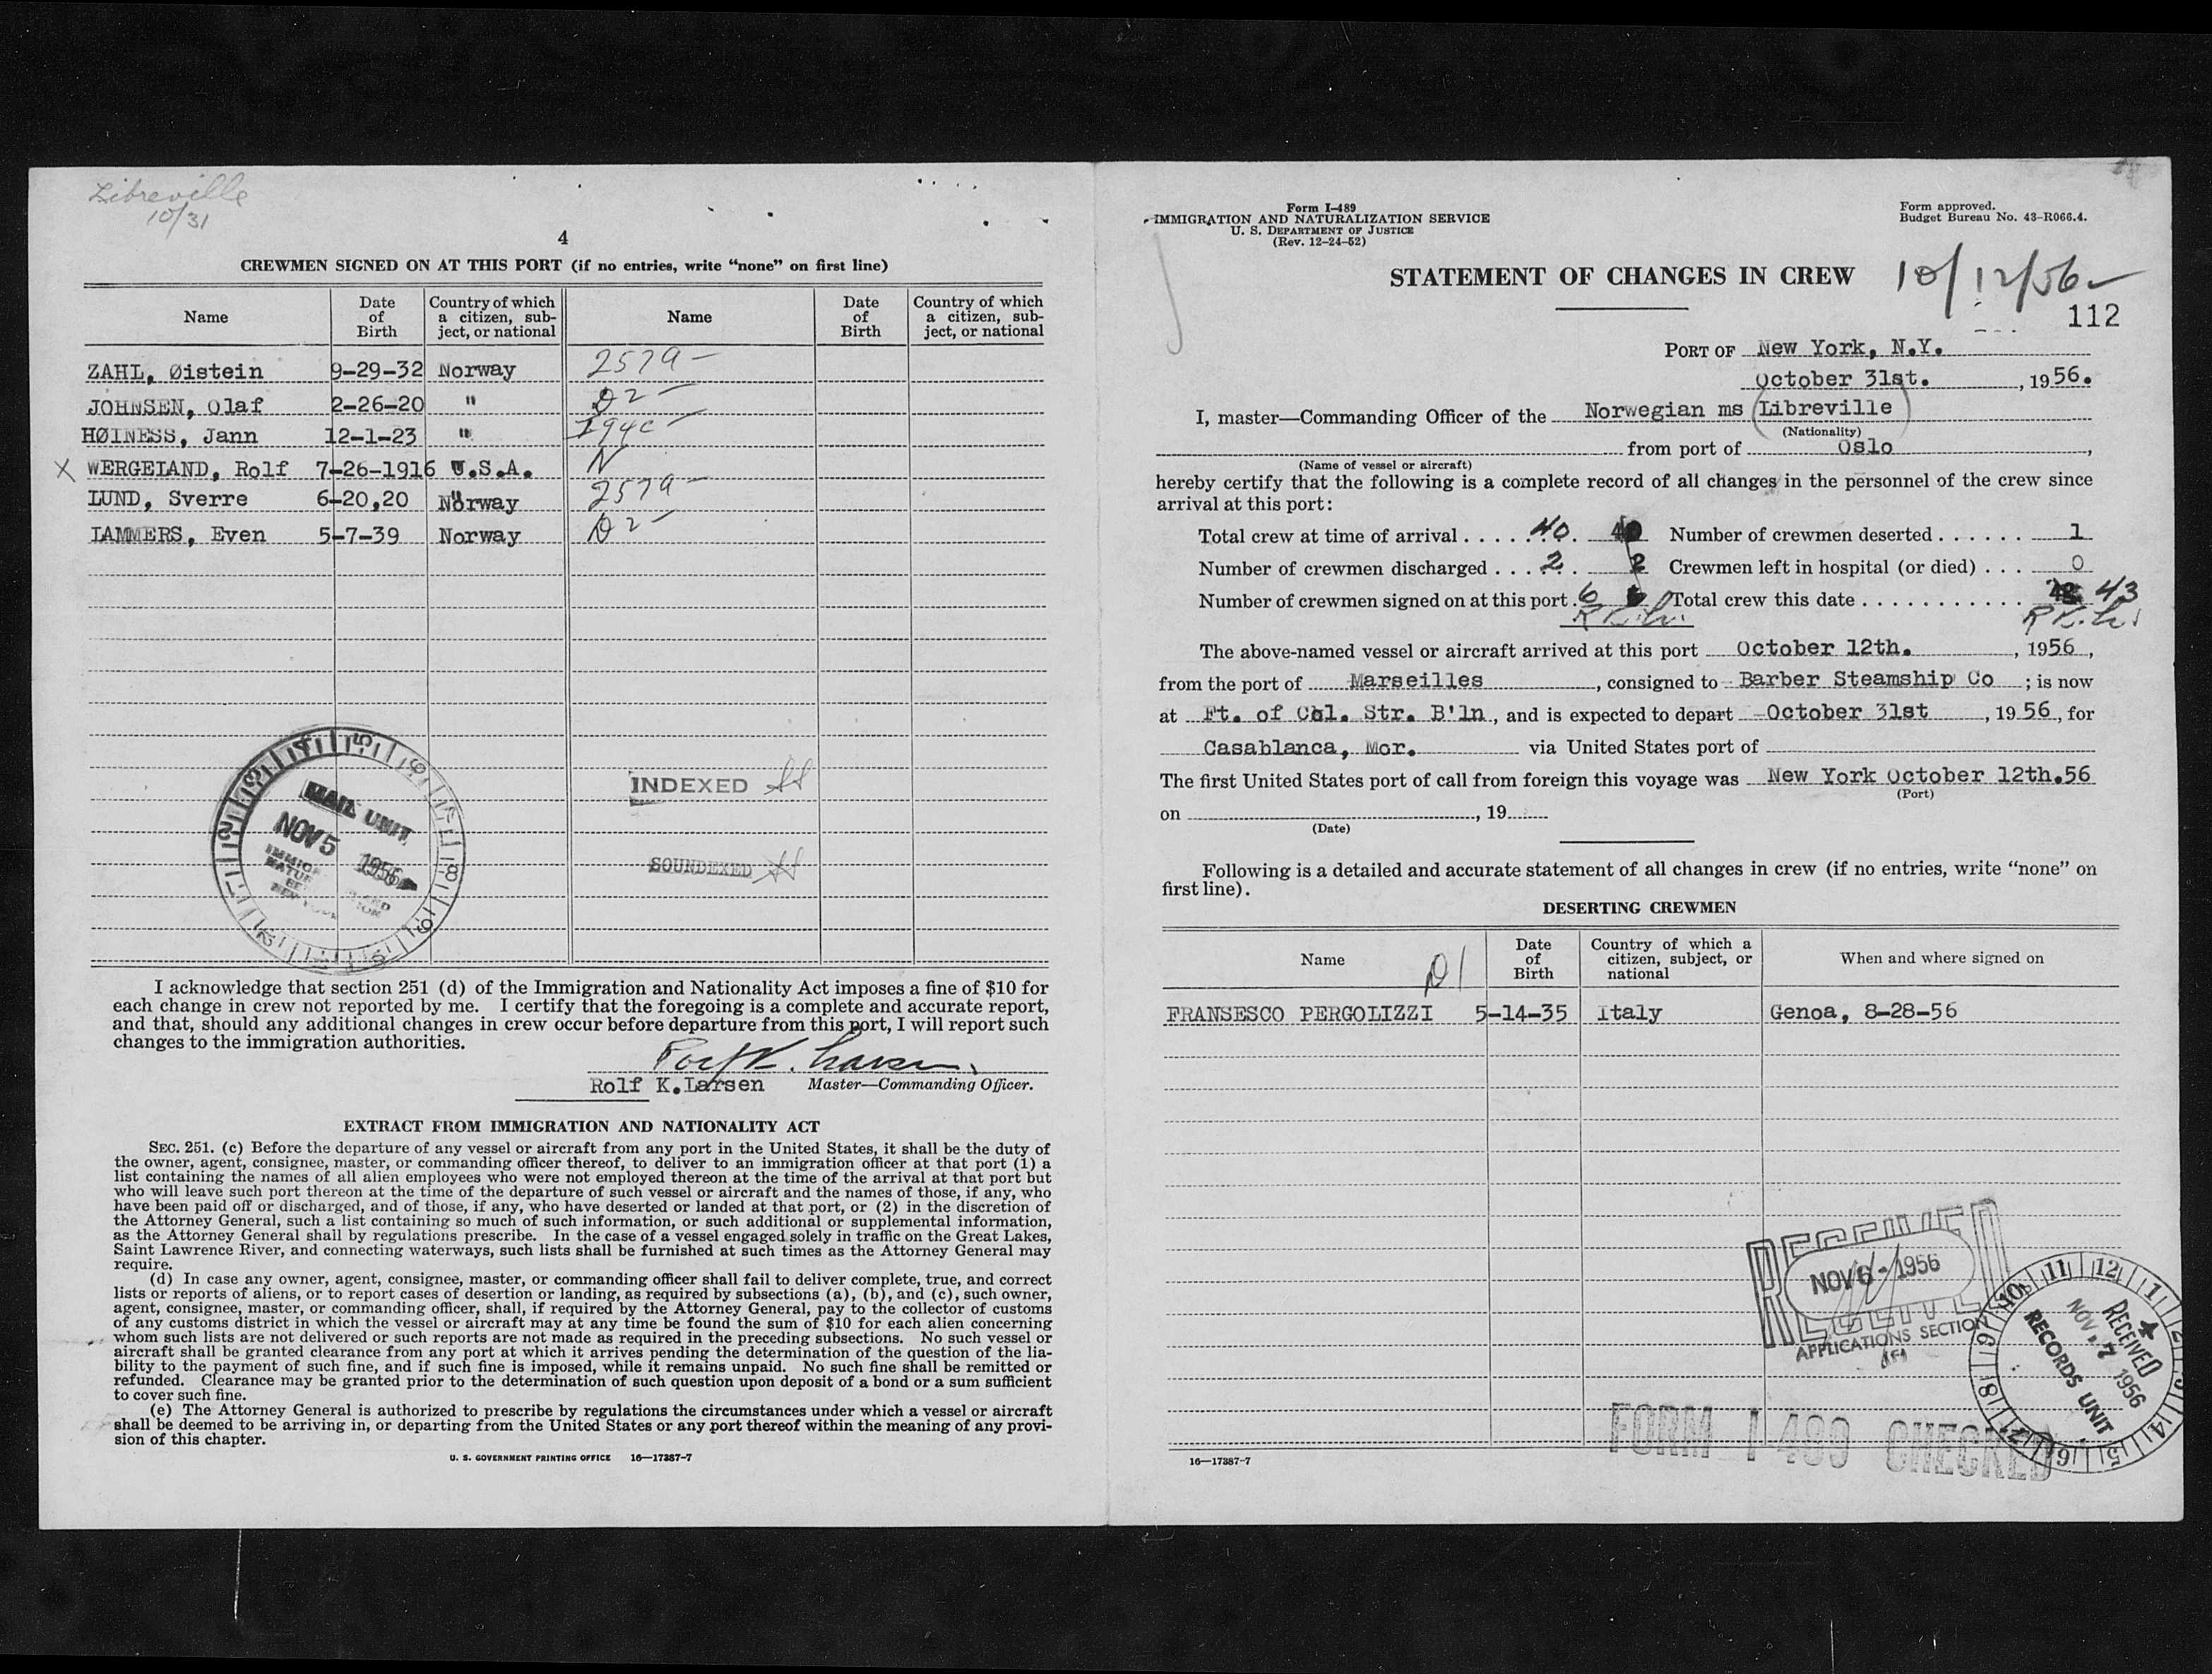 Libreville
10/31
4
CREWMEN SIGNED ON AT THIS PORT (if no entries, write “none” on first line)
Name Date of Birth Country of which a citizen, subject, or national Name Date of Birth Country of which a citizen, subject, or national
ZAHL, Øistein 9-29-32 Norway 2579 -
JOHNSEN, Olaf 2-26-20 " D2 -
HØINESS, Jann 12-1-23 " I94C -
X WERGELAND, Rolf 7-26-1916 U.S.A. N
LUND, Sverre 6-20,20 Norway 2579 -
LAMMERS, Even 5-7-39 Norway D2 -
MAIL UNIT
NOV 5 1956
INDEXED
SOUNDEXED
I acknowledge that section 251 (d) of the Immigration and Nationality Act imposes a fine of $10 for
each change in crew not reported by me. I certify that the foregoing is a complete and accurate report,
and that, should any additional changes in crew occur before departure from this port, I will report such
changes to the immigration authorities.
Rolf K. Larsen
Rolf K.Larsen Master—Commanding Officer.
EXTRACT FROM IMMIGRATION AND NATIONALITY ACT
SEC. 251. (c) Before the departure of any vessel or aircraft from any port in the United States, it shall be the duty of
the owner, agent, consignee, master, or commanding officer thereof, to deliver to an immigration officer at that port (1) a
list containing the names of all alien employees who were not employed thereon at the time of the arrival at that port but
who will leave such port thereon at the time of the departure of such vessel or aircraft and the names of those, if any, who
have been paid off or discharged, and of those, if any, who have deserted or landed at that port, or (2) in the discretion of
the Attorney General, such a list containing so much of such information, or such additional or supplemental information,
as the Attorney General shall by regulations prescribe. In the case of a vessel engaged solely in traffic on the Great Lakes,
Saint Lawrence River, and connecting waterways, such lists shall be furnished at such times as the Attorney General may
require.
(d) In case any owner, agent, consignee, master, or commanding officer shall fail to deliver complete, true, and correct
lists or reports of aliens, or to report cases of desertion or landing, as required by subsections (a), (b), and (c), such owner,
agent, consignee, master, or commanding officer, shall, if required by the Attorney General, pay to the collector of customs
of any customs district in which the vessel or aircraft may at any time be found the sum of $10 for each alien concerning
whom such lists are not delivered or such reports are not made as required in the preceding subsections. No such vessel or
aircraft shall be granted clearance from any port at which it arrives pending the determination of the question of the lia-
bility to the payment of such fine, and if such fine is imposed, while it remains unpaid. No such fine shall be remitted or
refunded. Clearance may be granted prior to the determination of such question upon deposit of a bond or a sum sufficient
to cover such fine.
(e) The Attorney General is authorized to prescribe by regulations the circumstances under which a vessel or aircraft
shall be deemed to be arriving in, or departing from the United States or any port thereof within the meaning of any provi-
sion of this chapter.
U. S. GOVERNMENT PRINTING OFFICE 16—17387-7
Form I-489
IMMIGRATION AND NATURALIZATION SERVICE
U. S. DEPARTMENT OF JUSTICE
(Rev. 12-24-52)
Form approved.
Budget Bureau No. 43-R066.4.
STATEMENT OF CHANGES IN CREW
10/12/56
112
PORT OF New York, N.Y.
October 31st. , 1956.
I, master—Commanding Officer of the Norwegian ms Libreville
(Nationality)
from port of Oslo ,
(Name of vessel or aircraft)
hereby certify that the following is a complete record of all changes in the personnel of the crew since
arrival at this port:
Total crew at time of arrival . . . . . 40. 40 Number of crewmen deserted . . . . . . 1
Number of crewmen discharged . . . 2. 2 Crewmen left in hospital (or died) . . . 0
Number of crewmen signed on at this port . 6 Total crew this date . . . . . . . . . . . . 43
R K. L. R K. L.
The above-named vessel or aircraft arrived at this port October 12th. , 1956 ,
from the port of Marseilles , consigned to Barber Steamship Co ; is now
at Ft. of Col. Str. B'ln , and is expected to depart October 31st , 1956 , for
Casablanca, Mor. via United States port of
The first United States port of call from foreign this voyage was New York October 12th.56
(Port)
on , 19
(Date)
Following is a detailed and accurate statement of all changes in crew (if no entries, write “none” on
first line).
DESERTING CREWMEN
Name D1 Date of Birth Country of which a citizen, subject, or national When and where signed on
FRANSESCO PERGOLIZZI 5-14-35 Italy Genoa, 8-28-56
RECEIVED
NOV 6 - 1956
APPLICATIONS SECTION
10 11 12 1 2 3 4 5 6 7 8 9
RECEIVED
NOV 7 1956
RECORDS UNIT
FORM I-489 CHECKED
16—17387-7